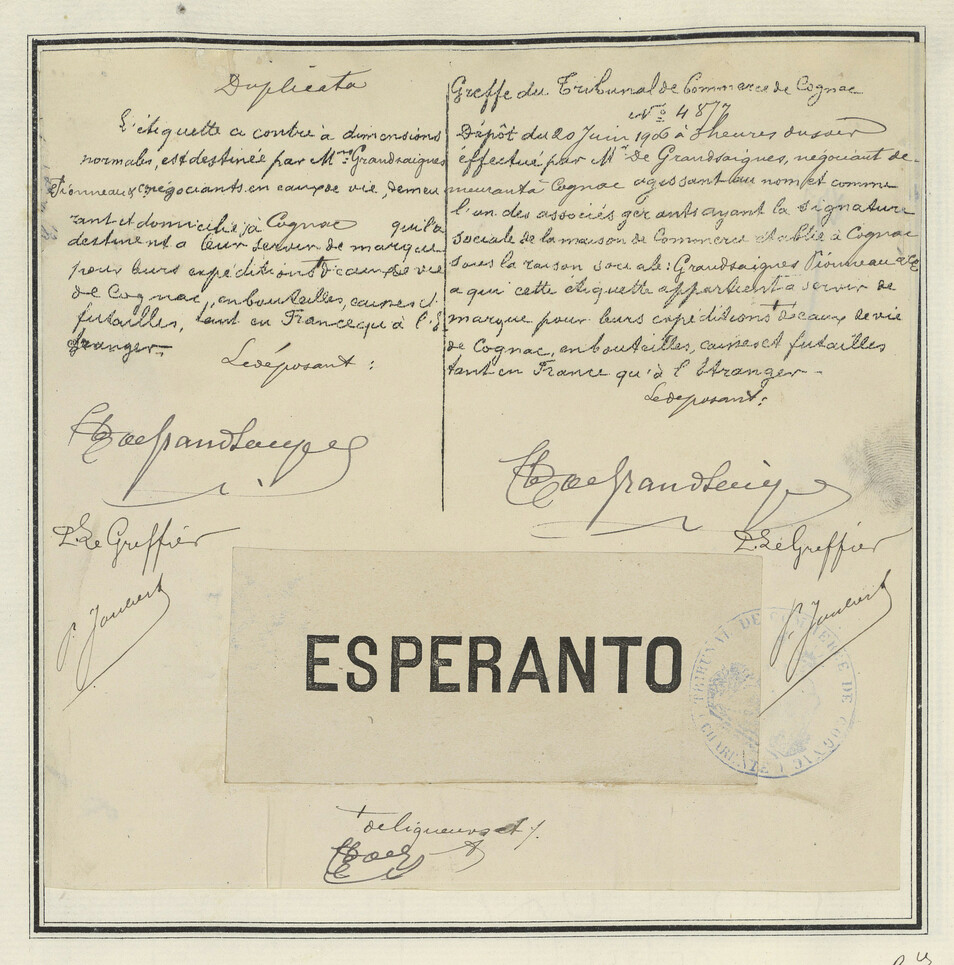 Duplicata
L'étiquette ci contre à dimensions
normales, est destinée par Mrs Grandsaignes
Pionneau & Co négociants en eaux de vie, demeu
rant et domiciliés à Cognac qui la
destinent à leur servir de marque
pour leurs expéditions d'eaux de vie
de Cognac, en bouteilles, caisses et
futailles, tant en France qu'à l'É
tranger.
Le déposant :
P. Le Greffier
P. Joubert
Greffe du Tribunal de Commerce de Cognac
No 4877
Dépôt du 20 Juin 1906 à 3 heures du soir
éffectué par Mr de Grandsaignes, négociant de-
meurant à Cognac agissant au nom et comme
l'un des associés gérants ayant la signature
sociale de la maison de Commerce établie à Cognac
sous la raison sociale : Grandsaignes Pionneau & Co
a qui cette étiquette appartient à servir de
marque pour leurs expéditions d'eaux de vie
de Cognac, en bouteilles, caisses et futailles
tant en France qu'à l'étranger -
Le déposant :
P. Le Greffier
P. Joubert
ESPERANTO
TRIBUNAL DE COMMERCE DE COGNAC
(CHARENTE)
de liqueurs et